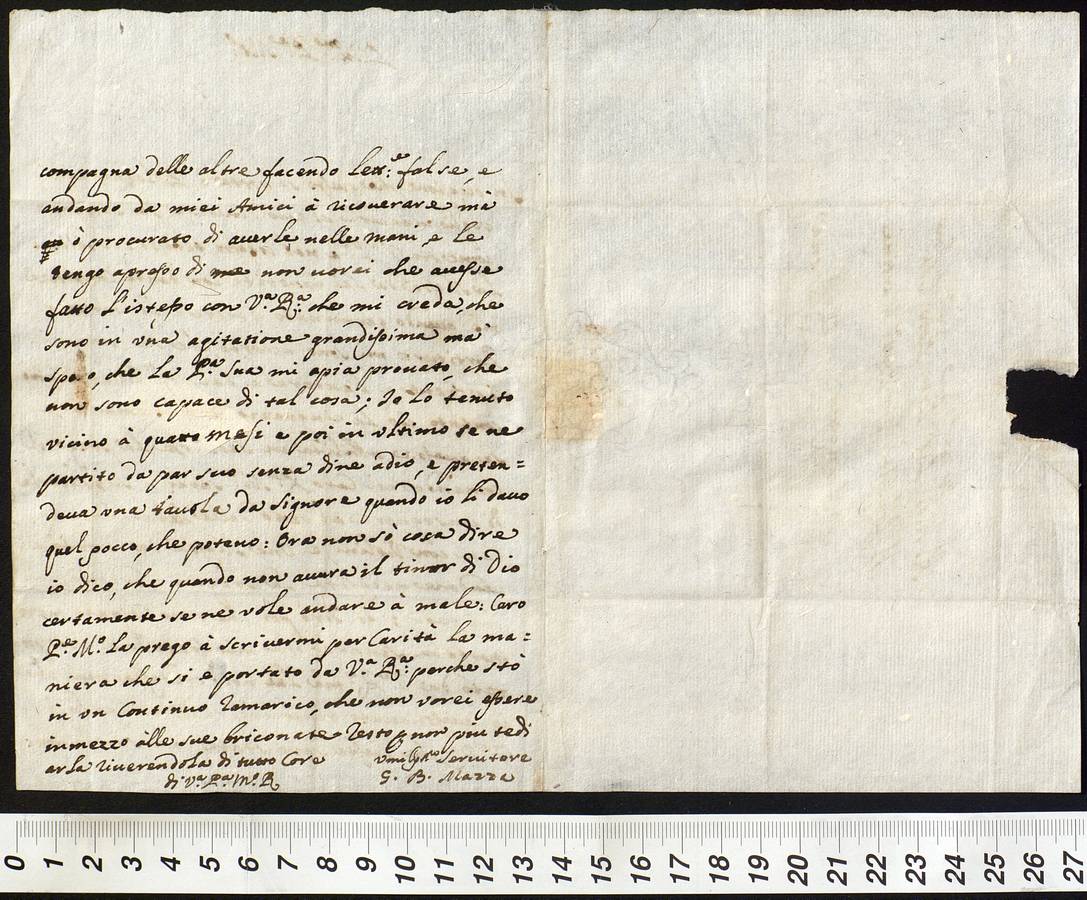 compagna delle altre facendo lett:e false, e
andando da miei Amici à ricoverare mà
ò procurato di averle nelle mani, e le
tengo apresso di me non vorei che avesse
fatto l'istesso con V.a R.a che mi creda, che
sono in vna agitatione grandissima mà
spero, che La P.a Sua mi apia provato, che
non sono capace di tal cosa; Io lo tenuto
vicino à quatro mesi e poi in vltimo se ne
partito da par suo senza dire adio, e preten=
deva vna tavola da Signore quando io li davo
quel pocco, che potevo: Ora non sò cosa dire
io dico, che quando non avvra il timor di Dio
certamente se ne vole andare à male: Caro
P.e M.o La prego à scrivermi per Carità la ma=
niera che si e portato da V.a R.a perche stò
in vn Continuo ramarico, che non vorei essere
in mezzo àlle sue briconate Resto p non piu tedi
arla riverendola di tutto Core
vmiliss.o Servitore
di V.a P.a M.o R
G. B. Mazza
0 1 2 3 4 5 6 7 8 9 10 11 12 13 14 15 16 17 18 19 20 21 22 23 24 25 26 27